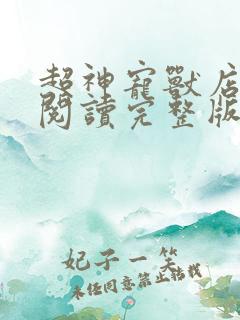 超神寵獸店
閱讀完整版
妃子一笑
未任同意禁止轉載